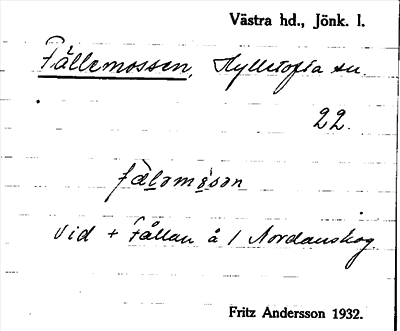 Västra hd., Jönk. l.
Fällemossen, Hylletofta sn.
22.
fæləmosən
Vid + Fållan å 1 Nordanskog.
Fritz Andersson 1932.